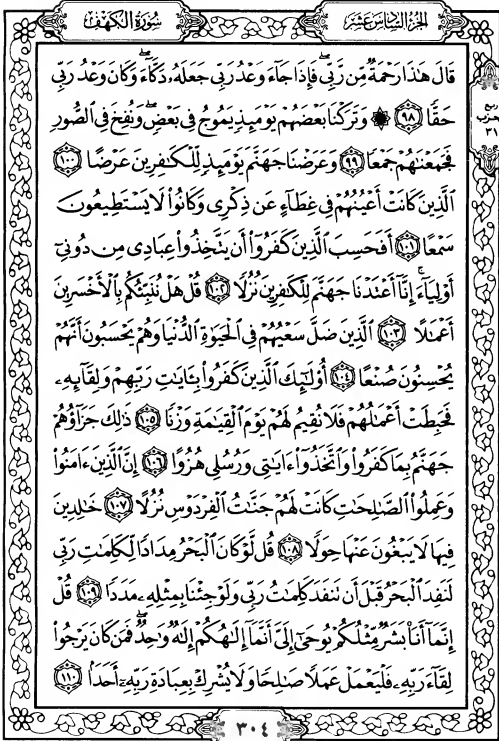 سُورَةُ الكَهْفِ
الجُزْءُ السَّادِسَ عَشَرَ
قَالَ هَٰذَا رَحْمَةٌ مِّن رَّبِّي ۖ فَإِذَا جَآءَ وَعْدُ رَبِّي جَعَلَهُۥ دَكَّآءَ ۖ وَكَانَ وَعْدُ رَبِّي
حَقًّا ﴿٩٨﴾ ۞ وَتَرَكْنَا بَعْضَهُمْ يَوْمَئِذٍ يَمُوجُ فِي بَعْضٍ ۖ وَنُفِخَ فِي ٱلصُّورِ
فَجَمَعْنَٰهُمْ جَمْعًا ﴿٩٩﴾ وَعَرَضْنَا جَهَنَّمَ يَوْمَئِذٍ لِّلْكَٰفِرِينَ عَرْضًا ﴿١٠٠﴾
ٱلَّذِينَ كَانَتْ أَعْيُنُهُمْ فِي غِطَآءٍ عَن ذِكْرِي وَكَانُوا۟ لَا يَسْتَطِيعُونَ
سَمْعًا ﴿١٠١﴾ أَفَحَسِبَ ٱلَّذِينَ كَفَرُوٓا۟ أَن يَتَّخِذُوا۟ عِبَادِي مِن دُونِيٓ
أَوْلِيَآءَ ۚ إِنَّآ أَعْتَدْنَا جَهَنَّمَ لِلْكَٰفِرِينَ نُزُلًا ﴿١٠٢﴾ قُلْ هَلْ نُنَبِّئُكُم بِٱلْأَخْسَرِينَ
أَعْمَٰلًا ﴿١٠٣﴾ ٱلَّذِينَ ضَلَّ سَعْيُهُمْ فِي ٱلْحَيَوٰةِ ٱلدُّنْيَا وَهُمْ يَحْسَبُونَ أَنَّهُمْ
يُحْسِنُونَ صُنْعًا ﴿١٠٤﴾ أُو۟لَٰٓئِكَ ٱلَّذِينَ كَفَرُوا۟ بِـَٔايَٰتِ رَبِّهِمْ وَلِقَآئِهِۦ
فَحَبِطَتْ أَعْمَٰلُهُمْ فَلَا نُقِيمُ لَهُمْ يَوْمَ ٱلْقِيَٰمَةِ وَزْنًا ﴿١٠٥﴾ ذَٰلِكَ جَزَآؤُهُمْ
جَهَنَّمُ بِمَا كَفَرُوا۟ وَٱتَّخَذُوٓا۟ ءَايَٰتِي وَرُسُلِي هُزُوًا ﴿١٠٦﴾ إِنَّ ٱلَّذِينَ ءَامَنُوا۟
وَعَمِلُوا۟ ٱلصَّٰلِحَٰتِ كَانَتْ لَهُمْ جَنَّٰتُ ٱلْفِرْدَوْسِ نُزُلًا ﴿١٠٧﴾ خَٰلِدِينَ
فِيهَا لَا يَبْغُونَ عَنْهَا حِوَلًا ﴿١٠٨﴾ قُل لَّوْ كَانَ ٱلْبَحْرُ مِدَادًا لِّكَلِمَٰتِ رَبِّي
لَنَفِدَ ٱلْبَحْرُ قَبْلَ أَن تَنفَدَ كَلِمَٰتُ رَبِّي وَلَوْ جِئْنَا بِمِثْلِهِۦ مَدَدًا ﴿١٠٩﴾ قُلْ
إِنَّمَآ أَنَا۠ بَشَرٌ مِّثْلُكُمْ يُوحَىٰٓ إِلَيَّ أَنَّمَآ إِلَٰهُكُمْ إِلَٰهٌ وَٰحِدٌ ۖ فَمَن كَانَ يَرْجُوا۟
لِقَآءَ رَبِّهِۦ فَلْيَعْمَلْ عَمَلًا صَٰلِحًا وَلَا يُشْرِكْ بِعِبَادَةِ رَبِّهِۦٓ أَحَدًۢا ﴿١١٠﴾
ربع
حزب
٣١
٣٠٤